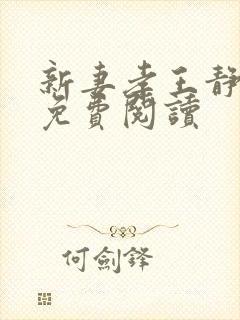 新妻李王靜
免費閱讀
何劍鋒